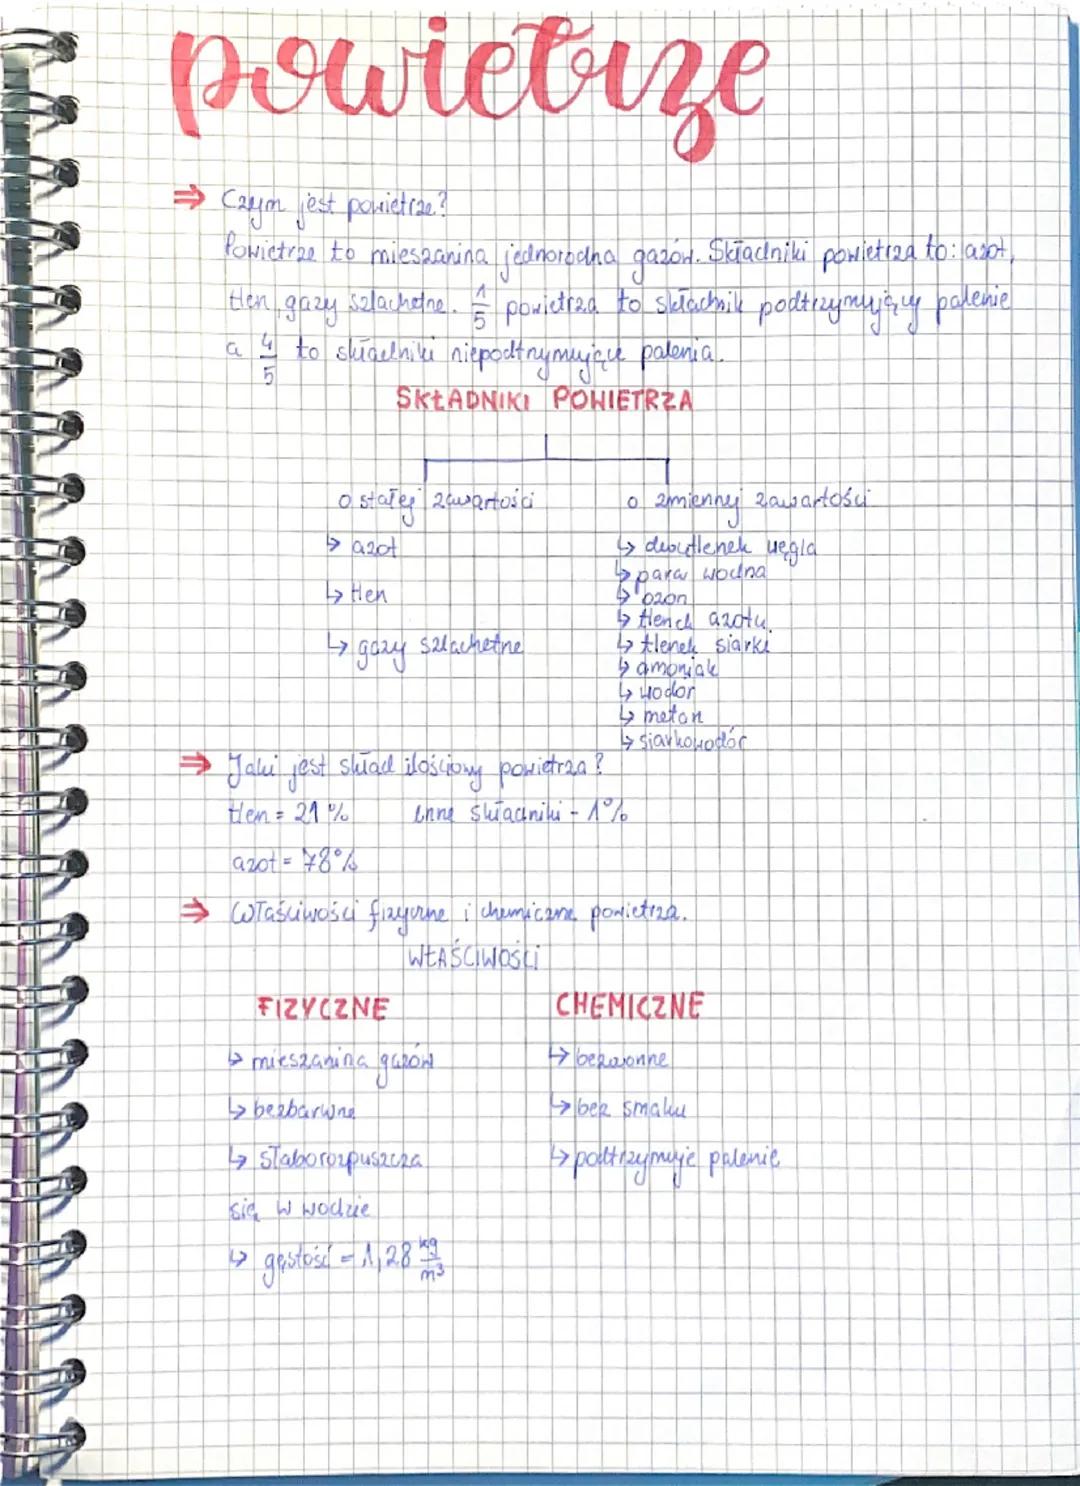 powietrze
⇒ Czym jest powietrze?
Powietrze to mieszanina jednorodna gazów. Składniki powietrza to: azot,
tlen, gazy szlachetne. 1/5 powietrza to składnik podtrzymujący palenie
a 4/5 to składniki niepodtrzymujące palenia.
SKŁADNIKI POWIETRZA
o stałej zawartości o zmiennej zawartości
↳ azot ↳ dwutlenek węgla
↳ para wodna
↳ tlen ↳ ozon
↳ tlenek azotu
↳ gazy szlachetne ↳ tlenek siarki
↳ amoniak
↳ wodór
↳ metan
↳ siarkowodór
⇒ Jaki jest skład ilościowy powietrza?
tlen = 21% inne składniki - 1%
azot = 78%
⇒ Właściwości fizyczne i chemiczne powietrza.
WŁAŚCIWOŚCI
FIZYCZNE CHEMICZNE
↳ mieszanina gazów ↳ bezwonne
↳ bezbarwne ↳ bez smaku
↳ słaborozpuszcza ↳ podtrzymuje palenie
się w wodzie
↳ gęstość = 1,28 kg/m³